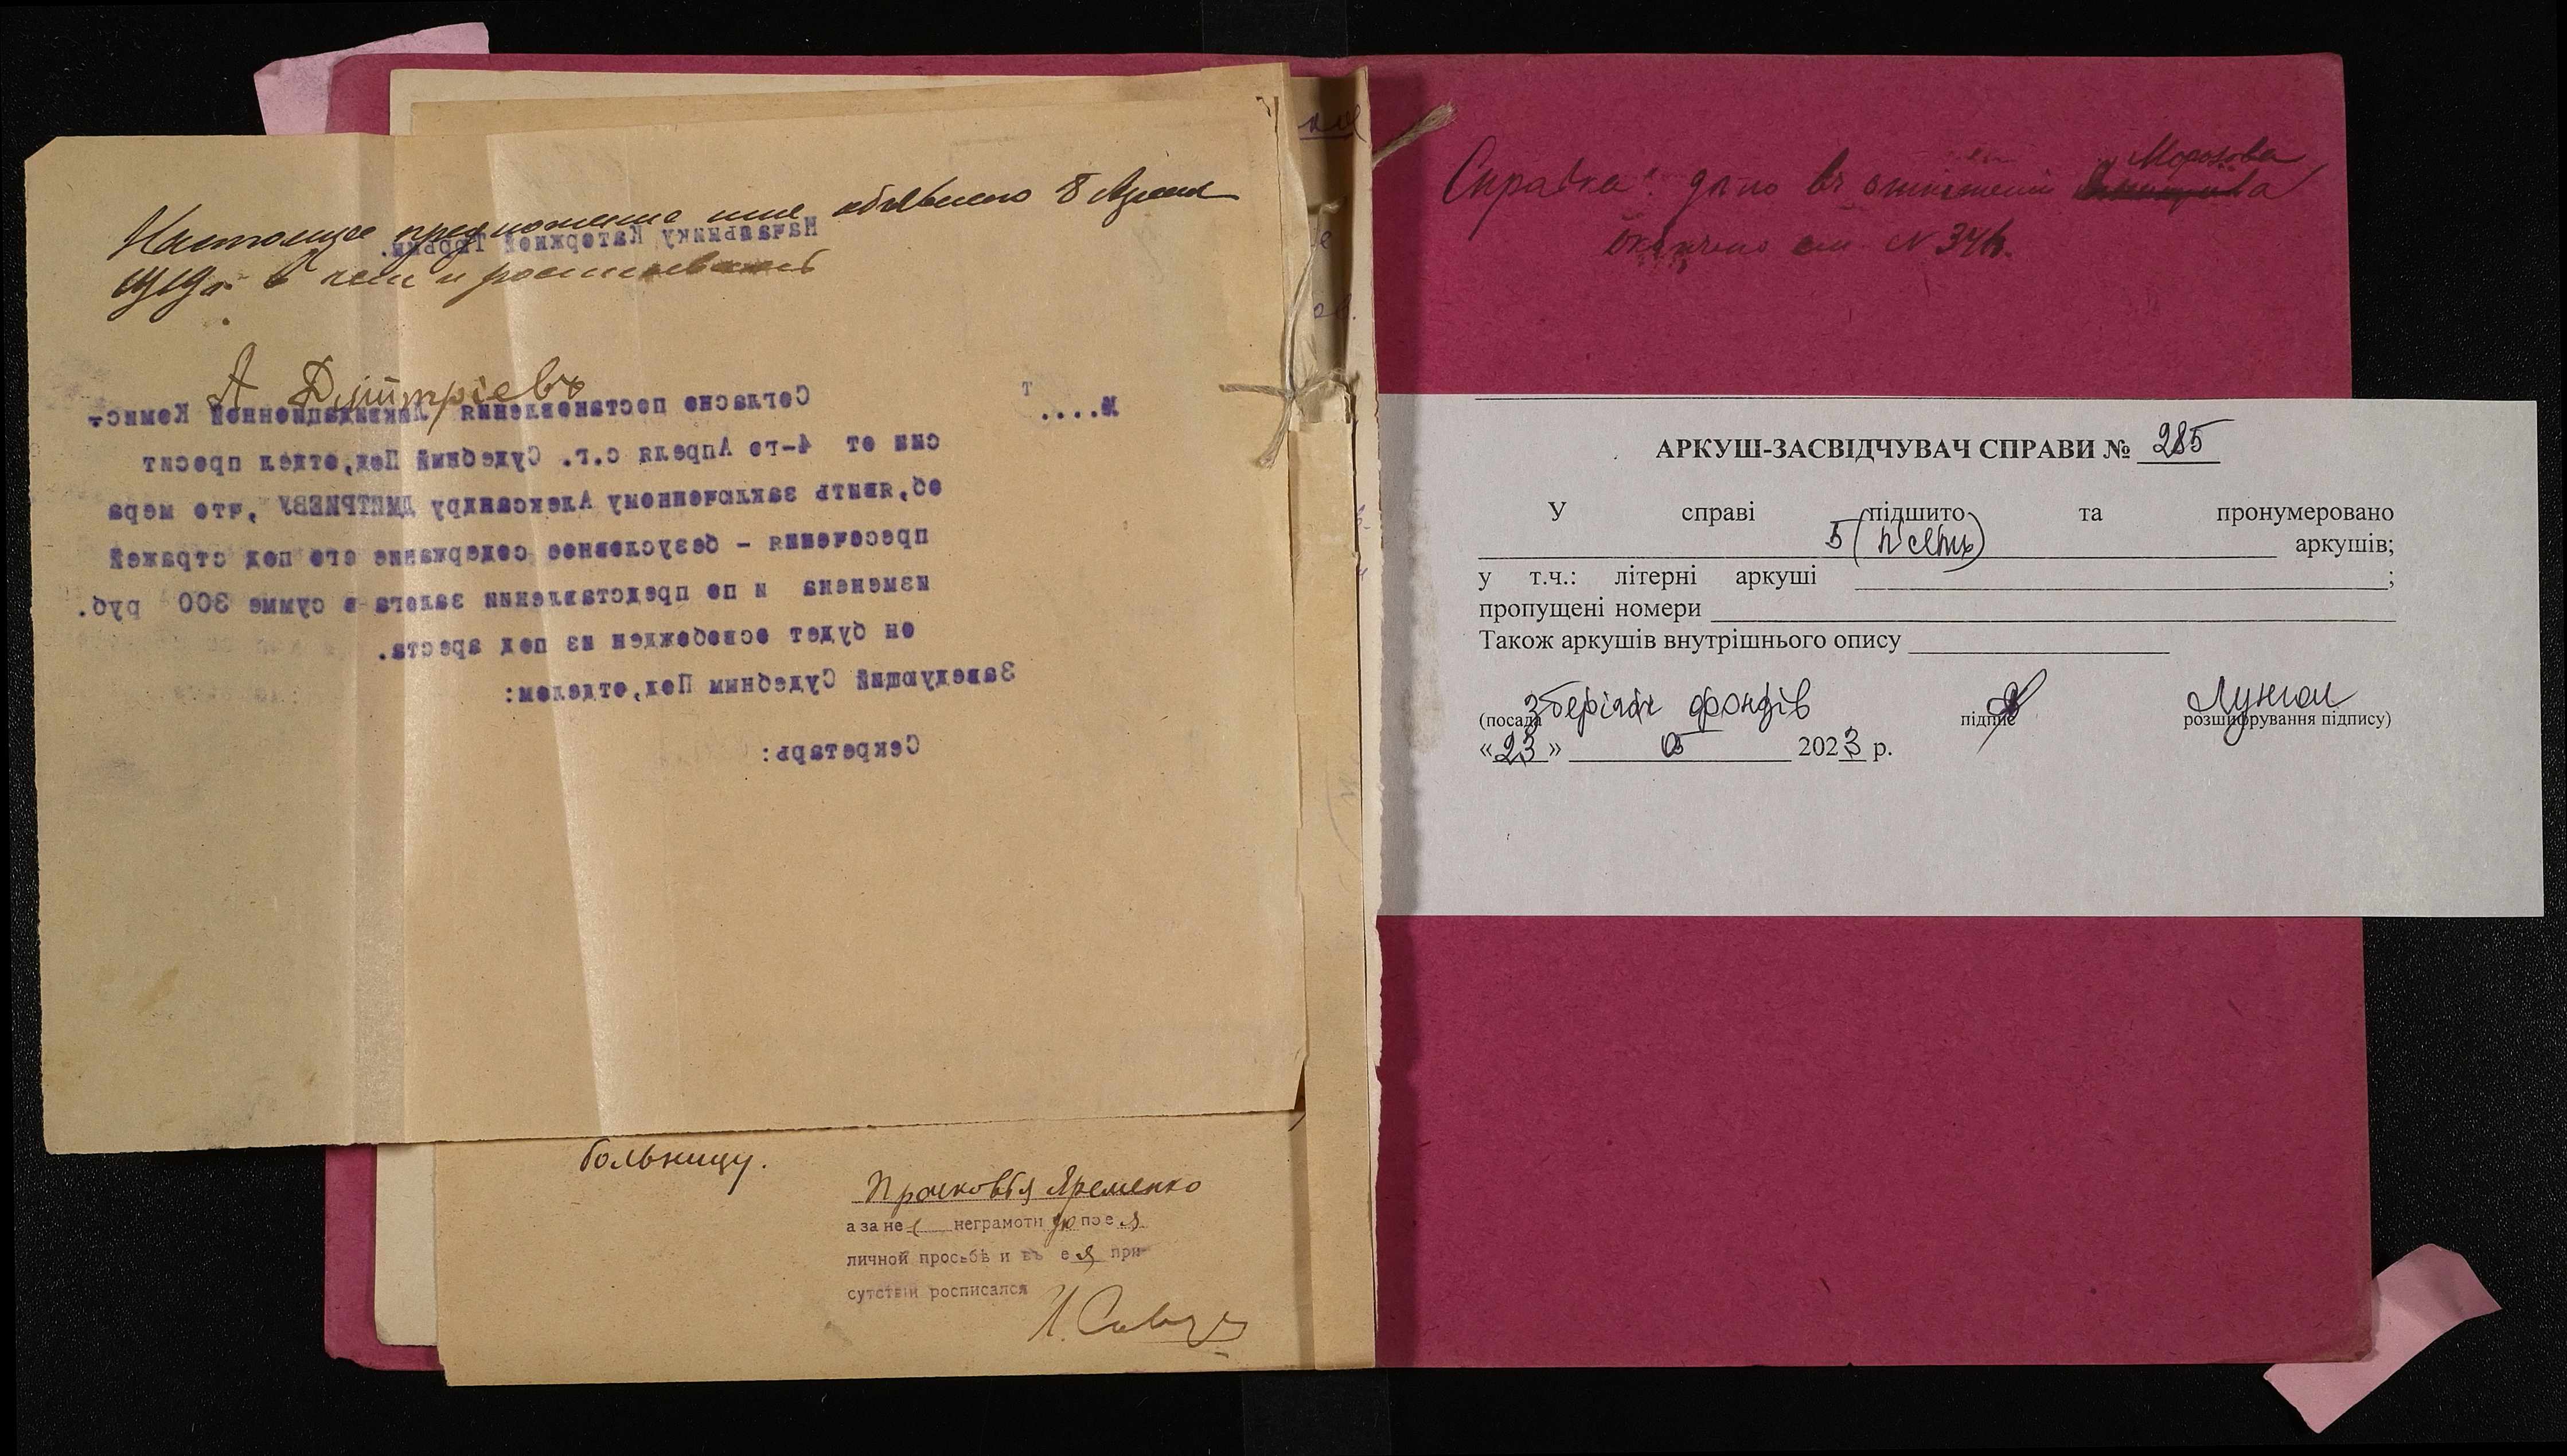 Настоящее предложение мне объявлено 8 Апреля
1919 г. в чем и росписываюсь
Начальнику Каторжной Тюрьмы.
А Дмитріевъ
№....
Согласно постановления Ликвидационной Комис-
сии от 4-го Апреля с.г. Судебный Под,отдел просит
об,явить заключенному Александру ДМИТРИЕВУ, что мера
пресечения - безусловное содержание его под стражей
изменена и по представлении залога в сумме 300 руб.
он будет освобожден из под ареста.
Заведующий Судебным Под,отделом:
Секретарь:
больницу.
Прасковья Яременко
а за не неграмотную по ея
личной просьбѣ и въ ея при-
сутствіи росписался
И. Сав
Справка: дѣло въ отношеніи Морозова
окончено см. N 34
АРКУШ-ЗАСВІДЧУВАЧ СПРАВИ № 285
У справі підшито та пронумеровано
5 (п'ять) аркушів;
у т.ч.: літерні аркуші ;
пропущені номери
Також аркушів внутрішнього опису
Зберігач фондів
(посада підпис розшифрування підпису)
«23» 05 2023 р.